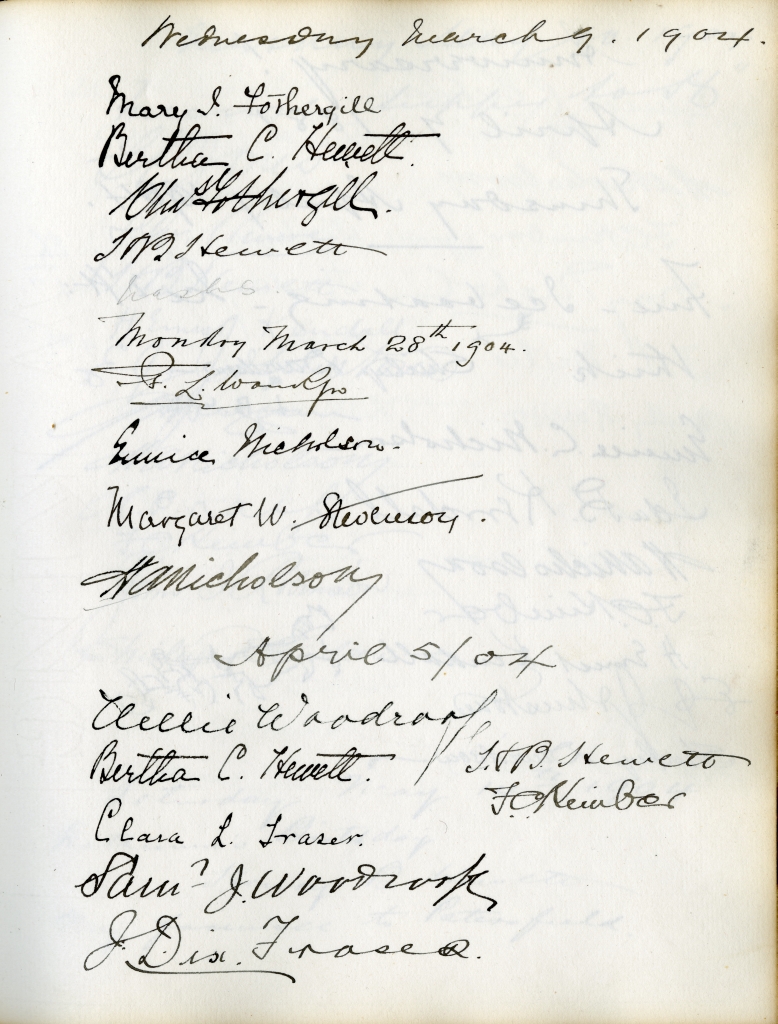 Wednesday March 9. 1904.
Mary I. Fothergill
Bertha C. Hewett.
Chas Fothergill.
Hewett
Monday March 28th 1904.
Eunice Nicholson.
Margaret W. Stevenson.
HA Nicholson
April 5/04
Nellie Woodroof
Bertha C. Hewett. Hewett
Clara L. Fraser.
Saml J. Woodroof
J. Dix. Fraser.